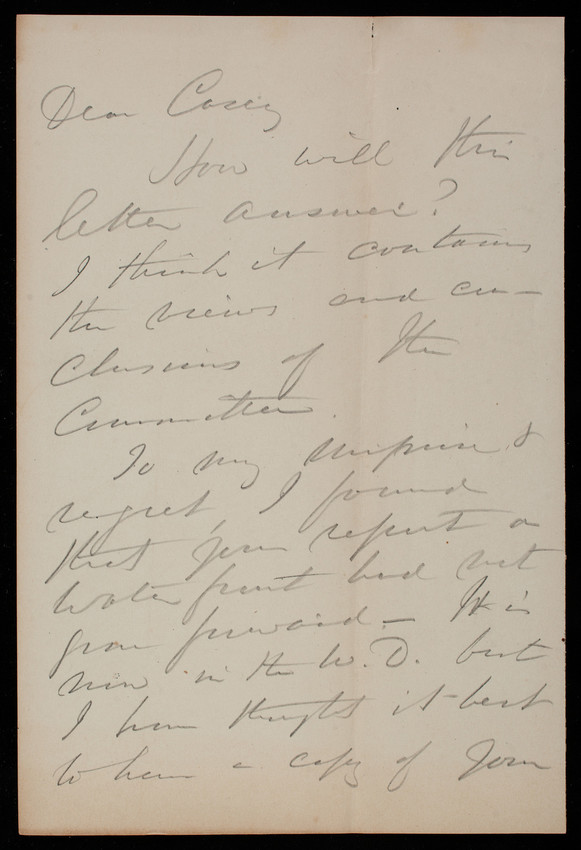 Dear Casey
How will this
letter answer?
I think it contains
the views and con-
clusions of the
Committee.
To my surprise &
regret, I found
that your report on
water front had not
gone forward – It is
now in the W. D. but
I have thought it best
to have a copy of your